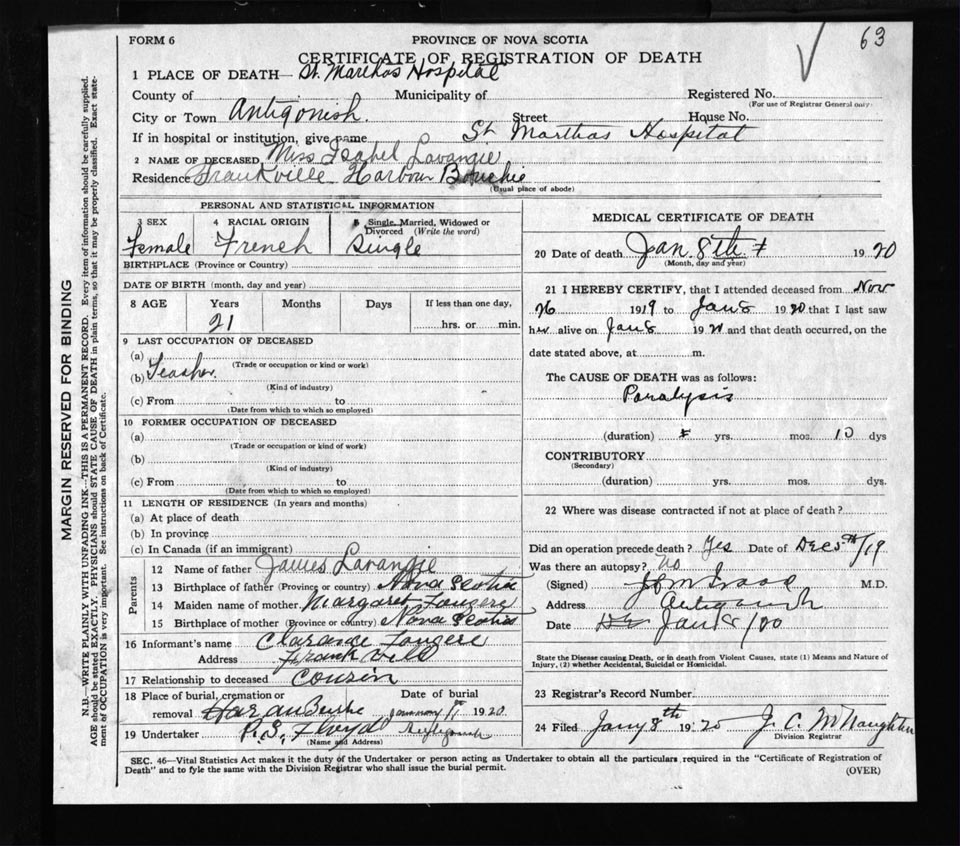 63
FORM 6
PROVINCE OF NOVA SCOTIA
CERTIFICATE OF REGISTRATION OF DEATH
1 PLACE OF DEATH— St. Marthas Hospital
County of Municipality of Registered No.
(For use of Registrar General only)
City or Town Antigonish. Street House No.
If in hospital or institution, give name St Marthas Hospital
2 NAME OF DECEASED Miss Isabel Lavangie
Residence Frankville Harbour Bouchie
(Usual place of abode)
PERSONAL AND STATISTICAL INFORMATION
3 SEX 4 RACIAL ORIGIN 5 Single, Married, Widowed or
Divorced (Write the word)
Female French Single
BIRTHPLACE (Province or Country)
DATE OF BIRTH (month, day and year)
8 AGE Years Months Days If less than one day,
21 hrs. or min.
9 LAST OCCUPATION OF DECEASED
(a)
(Trade or occupation or kind or work)
(b) Teacher.
(Kind of industry)
(c) From to
(Date from which to which so employed)
10 FORMER OCCUPATION OF DECEASED
(a)
(Trade or occupation or kind of work)
(b)
(Kind of industry)
(c) From to
(Date from which to which so employed)
11 LENGTH OF RESIDENCE (In years and months)
(a) At place of death
(b) In province
(c) In Canada (if an immigrant)
Parents
12 Name of father James Lavangie
13 Birthplace of father (Province or country) Nova Scotia
14 Maiden name of mother Margaret Fougere
15 Birthplace of mother (Province or country) Nova Scotia
16 Informant's name Clarance Fougere
Address Frankvill
17 Relationship to deceased Couzin
18 Place of burial, cremation or Date of burial
removal January 11 1920.
19 Undertaker R.S. Floyd
(Name and Address)
MEDICAL CERTIFICATE OF DEATH
20 Date of death Jan. 8th 1920
(Month, day and year)
21 I HEREBY CERTIFY, that I attended deceased from Nov
26 1919 to Jan 8 1920 that I last saw
her alive on Jan 8 1920 and that death occurred, on the
date stated above, at m.
The CAUSE OF DEATH was as follows:
Paralysis
(duration) yrs. mos. 10 dys
CONTRIBUTORY
(Secondary)
(duration) yrs. mos. dys.
22 Where was disease contracted if not at place of death?
Did an operation precede death? Yes Date of Dec 5th/19
Was there an autopsy? No
(Signed) M.D.
Address Antigonish
Date Jan 8/
State the Disease causing Death, or in death from Violent Causes, state (1) Means and Nature of
Injury, (2) whether Accidental, Suicidal or Homicidal.
23 Registrar's Record Number
24 Filed Jany 8th 1920 J. C. McNaughton
Division Registrar
SEC. 46—Vital Statistics Act makes it the duty of the Undertaker or person acting as Undertaker to obtain all the particulars required in the "Certificate of Registration of
Death" and to fyle the same with the Division Registrar who shall issue the burial permit.
(OVER)
MARGIN RESERVED FOR BINDING
N.B.—WRITE PLAINLY WITH UNFADING INK—THIS IS A PERMANENT RECORD. Every item of information should be carefully supplied.
AGE should be stated EXACTLY. PHYSICIANS should STATE CAUSE OF DEATH in plain terms, so that it may be properly classified. Exact state-
ment of OCCUPATION is very important. See instructions on back of Certificate.